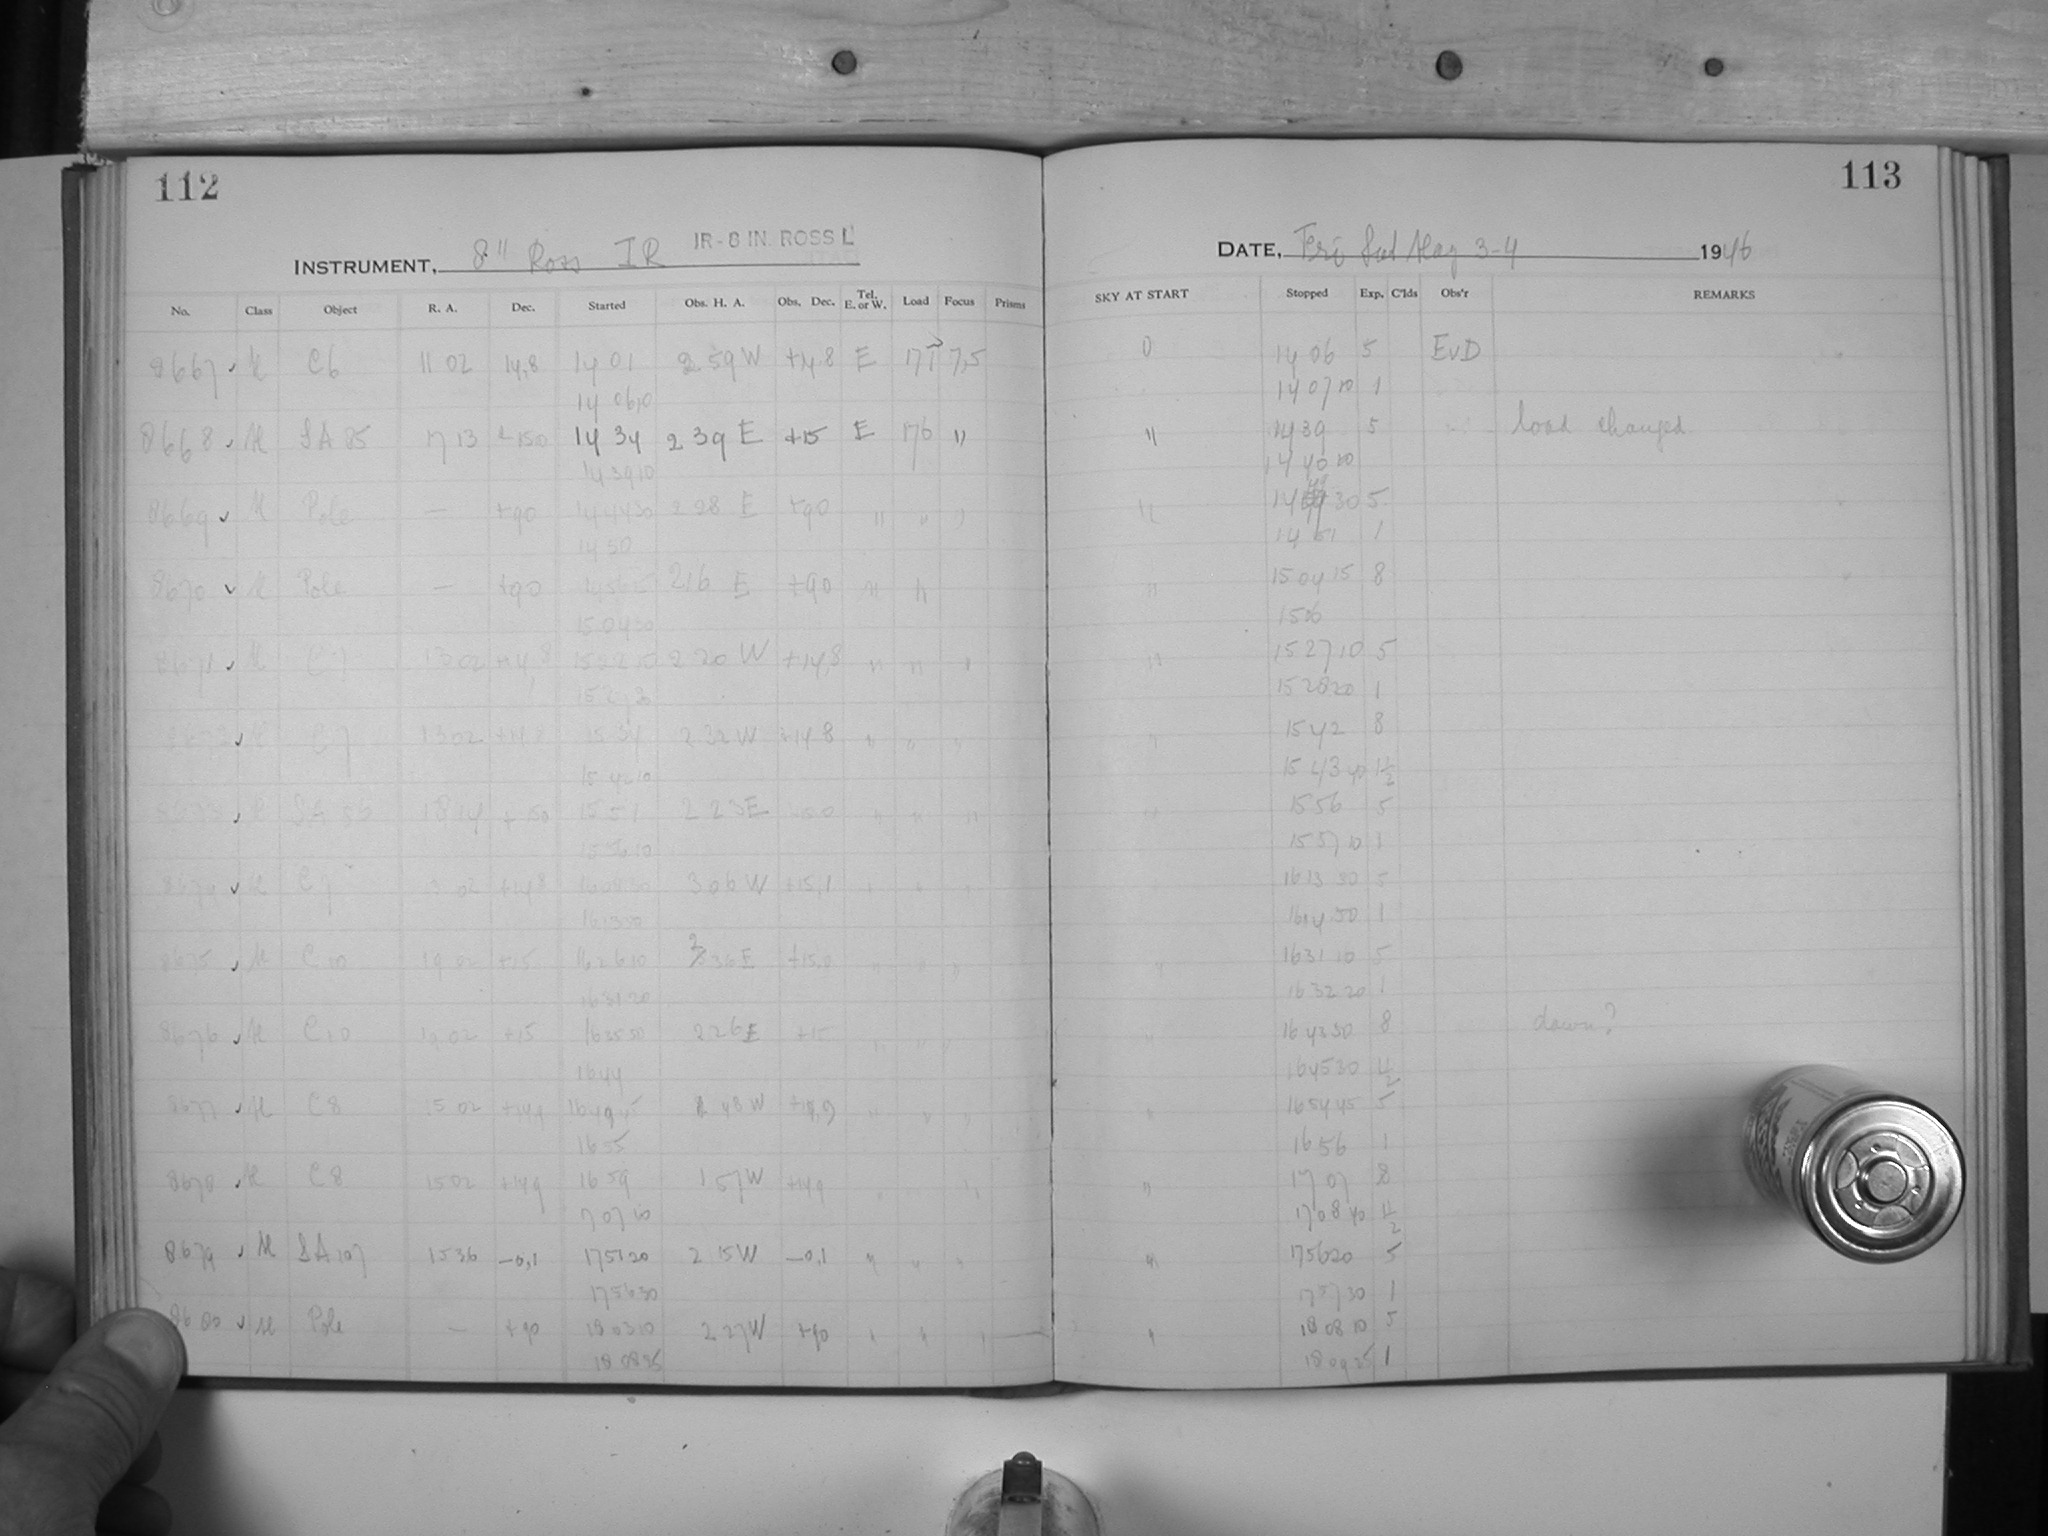 112
INSTRUMENT, 8" Ross IR IR-8 IN. ROSS L
No. Class Object R. A. Dec. Started Obs. H. A. Obs. Dec. Tel. E. or W. Load Focus Prisms
8667 C6 11 02 14,8 14 01 2 59 W +14.8 E 177 7,5
14 06 10
8668 SA 85 17 13 +150 14 34 2 39 E +15 E 176 "
14 39 10
8669 Pole — +90 14 44 30 2 28 E +90 " " "
14 50
8670 Pole — +90 216 E +90 " "
15 04 30
C7 13 02 +14,8 15 22 10 2 20 W +14,8 " " "
C7 13 02 +14,8 15 34 2 32 W +14 8 " " "
15 42 10
SA 86 18 14 +150 15 51 2 23 E " " "
15 56 10
8674 C7 13 02 +14,8 16 08 30 3 06 W +15,1 " " "
16 13 50
8675 C10 19 02 +15 16 26 10 2 36 E +15,0 " " "
16 31 20
8676 C10 19 02 +15 16 35 50 2 26 E +15 " " "
16 44
8677 C8 15 02 +14,9 16 49 45 1 48 W +14,9 " " "
16 55
8678 C8 15 02 +149 16 59 1 57 W +149 " "
7 07 10
8679 SA 107 15 36 —0,1 17 51 20 2 15 W —0,1 " " "
17 56 30
8680 Pole — +90 18 03 10 2 27 W +90 " " "
18 08 35
113
DATE, Fri Sat May 3-4 1946
SKY AT START Stopped Exp. C'lds Obs'r REMARKS
0 14 06 5 EvD
14 07 10 1
" 14 39 5 load changed
14 40 10
" 30 5
14 51 1
" 15 04 15 8
15 06
" 15 27 10 5
15 28 20 1
" 15 42 8
15 43 40 1½
" 15 56 5
15 57 10 1
16 13 30 5
16 14 50 1
" 16 31 10 5
16 32 20 1
" 16 43 50 8 dawn?
16 45 30 1½
" 16 54 45 5
16 56 1
" 17 07 8
17 08 40 1½
" 17 56 20 5
17 57 30 1
" 18 08 10 5
18 09 35 1